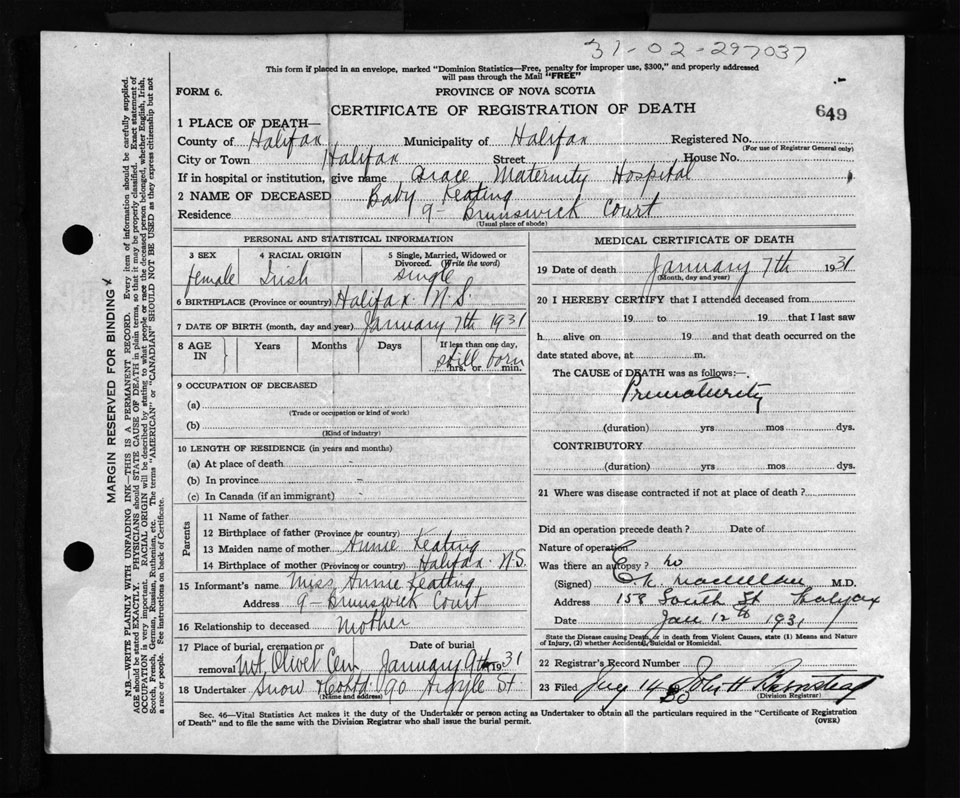 31-02-297037
This form if placed in an envelope, marked "Dominion Statistics—Free, penalty for improper use, $300," and properly addressed
will pass through the Mail "FREE"
FORM 6. PROVINCE OF NOVA SCOTIA
CERTIFICATE OF REGISTRATION OF DEATH
649
1 PLACE OF DEATH—
County of Halifax Municipality of Halifax Registered No.
(For use of Registrar General only)
City or Town Halifax Street House No.
If in hospital or institution, give name Grace Maternity Hospital
2 NAME OF DECEASED Baby Keating
Residence 9- Brunswick Court
(Usual place of abode)
PERSONAL AND STATISTICAL INFORMATION
3 SEX 4 RACIAL ORIGIN 5 Single, Married, Widowed or
Divorced. (Write the word)
female Irish single
6 BIRTHPLACE (Province or country) Halifax N.S.
7 DATE OF BIRTH (month, day and year) January 7th 1931
8 AGE IN Years Months Days If less than one day,
still born
hrs. or min.
9 OCCUPATION OF DECEASED
(a)
(Trade or occupation or kind of work)
(b)
(Kind of industry)
10 LENGTH OF RESIDENCE (in years and months)
(a) At place of death
(b) In province
(c) In Canada (if an immigrant)
Parents
11 Name of father
12 Birthplace of father (Province or country)
13 Maiden name of mother Annie Keating
14 Birthplace of mother (Province or country) Halifax N.S.
15 Informant's name Miss Annie Keating
Address 9- Brunswick Court
16 Relationship to deceased Mother
17 Place of burial, cremation or Date of burial
removal Mt Olivet Cem January 9th 1931
18 Undertaker Snow 90 Argyle St
(Name and address)
MEDICAL CERTIFICATE OF DEATH
19 Date of death January 7th 1931
(Month, day and year)
20 I HEREBY CERTIFY that I attended deceased from
19 to 19 that I last saw
h alive on 19 and that death occurred on the
date stated above, at m.
The CAUSE of DEATH was as follows:—
Prematurity
(duration) yrs mos dys.
CONTRIBUTORY
(duration) yrs mos dys.
21 Where was disease contracted if not at place of death?
Did an operation precede death? Date of
Nature of operation
Was there an autopsy? no
(Signed) MacLellan M.D.
Address 158 South St Halifax
Date Jan 12th 1931
State the Disease causing Death, or in death from Violent Causes, state (1) Means and Nature
of Injury, (2) whether Accidental, Suicidal or Homicidal.
22 Registrar's Record Number
23 Filed 14 John H Barnstead
(Division Registrar)
Sec. 46—Vital Statistics Act makes it the duty of the Undertaker or person acting as Undertaker to obtain all the particulars required in the "Certificate of Registration
of Death" and to file the same with the Division Registrar who shall issue the burial permit. (OVER)
MARGIN RESERVED FOR BINDING
N.B.—WRITE PLAINLY WITH UNFADING INK—THIS IS A PERMANENT RECORD. Every item of information should be carefully supplied.
AGE should be stated EXACTLY. PHYSICIANS should STATE CAUSE OF DEATH in plain terms, so that it may be properly classified. Exact statement of
OCCUPATION is very important. RACIAL ORIGIN will be described by stating to what people or race the deceased person belonged, whether English, Irish,
Scotch, French, German, Russian, Ruthenian, etc. The terms "AMERICAN" or "CANADIAN" SHOULD NOT BE USED as they express citizenship but not
a race or people. See instructions on back of Certificate.